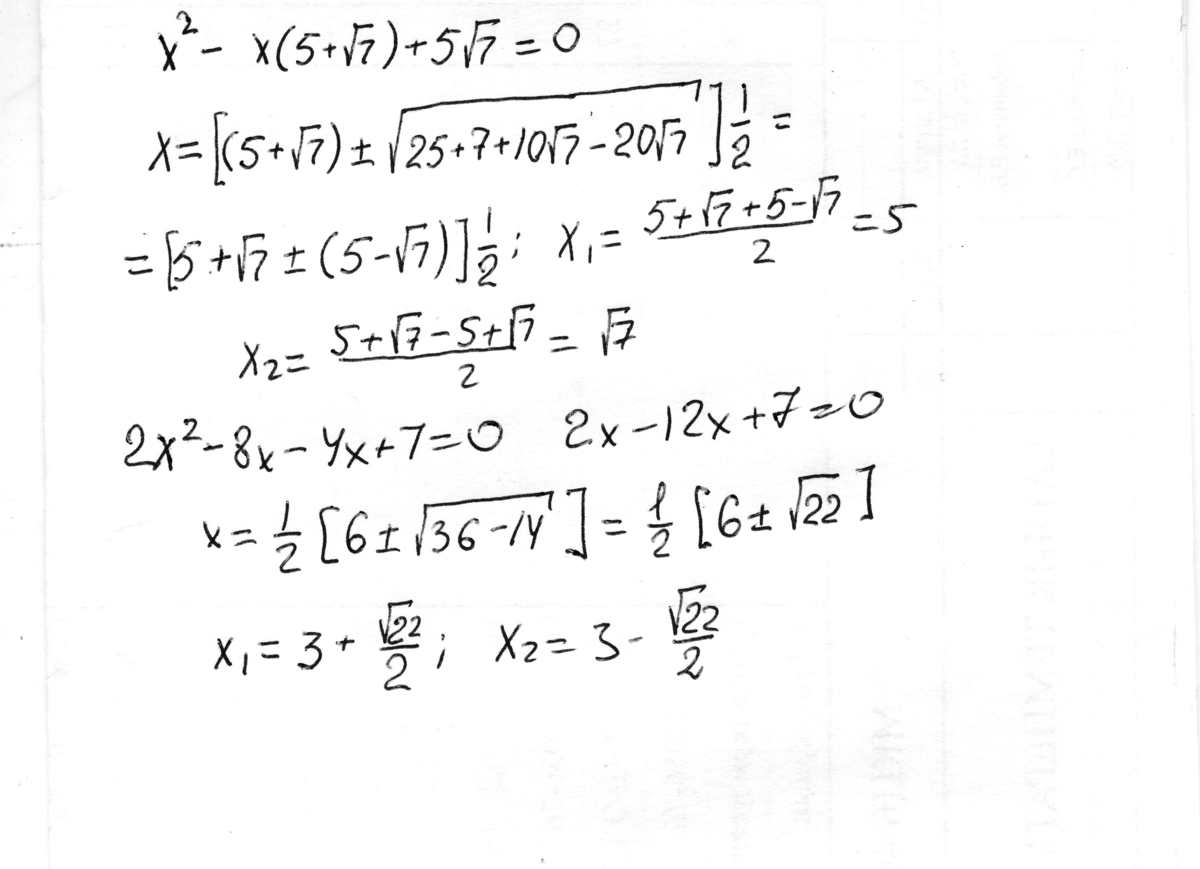 x² - x(5+√7)+5√7 = 0
x = [(5+√7) ± √(25+7+10√7-20√7)] 1/2 =
= [5+√7 ± (5-√7)] 1/2; x₁ = (5+√7+5-√7)/2 = 5
x₂ = (5+√7-5+√7)/2 = √7
2x² - 8x - 4x + 7 = 0 2x - 12x + 7 = 0
x = 1/2 [6 ± √(36-14)] = 1/2 [6 ± √22]
x₁ = 3 + √22/2; x₂ = 3 - √22/2